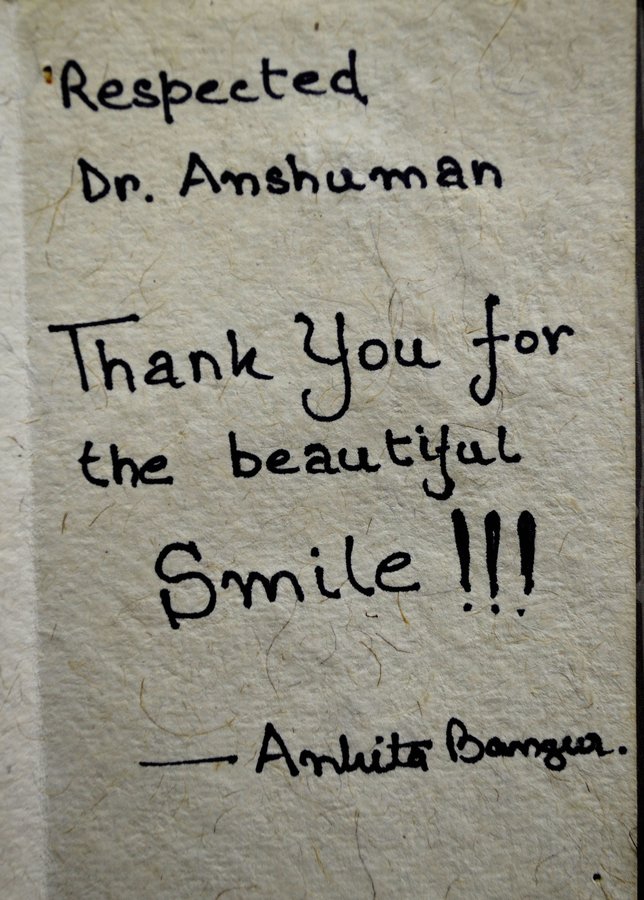 Respected
Dr. Anshuman
Thank You for
the beautiful
Smile !!!
— Ankita Bangur.